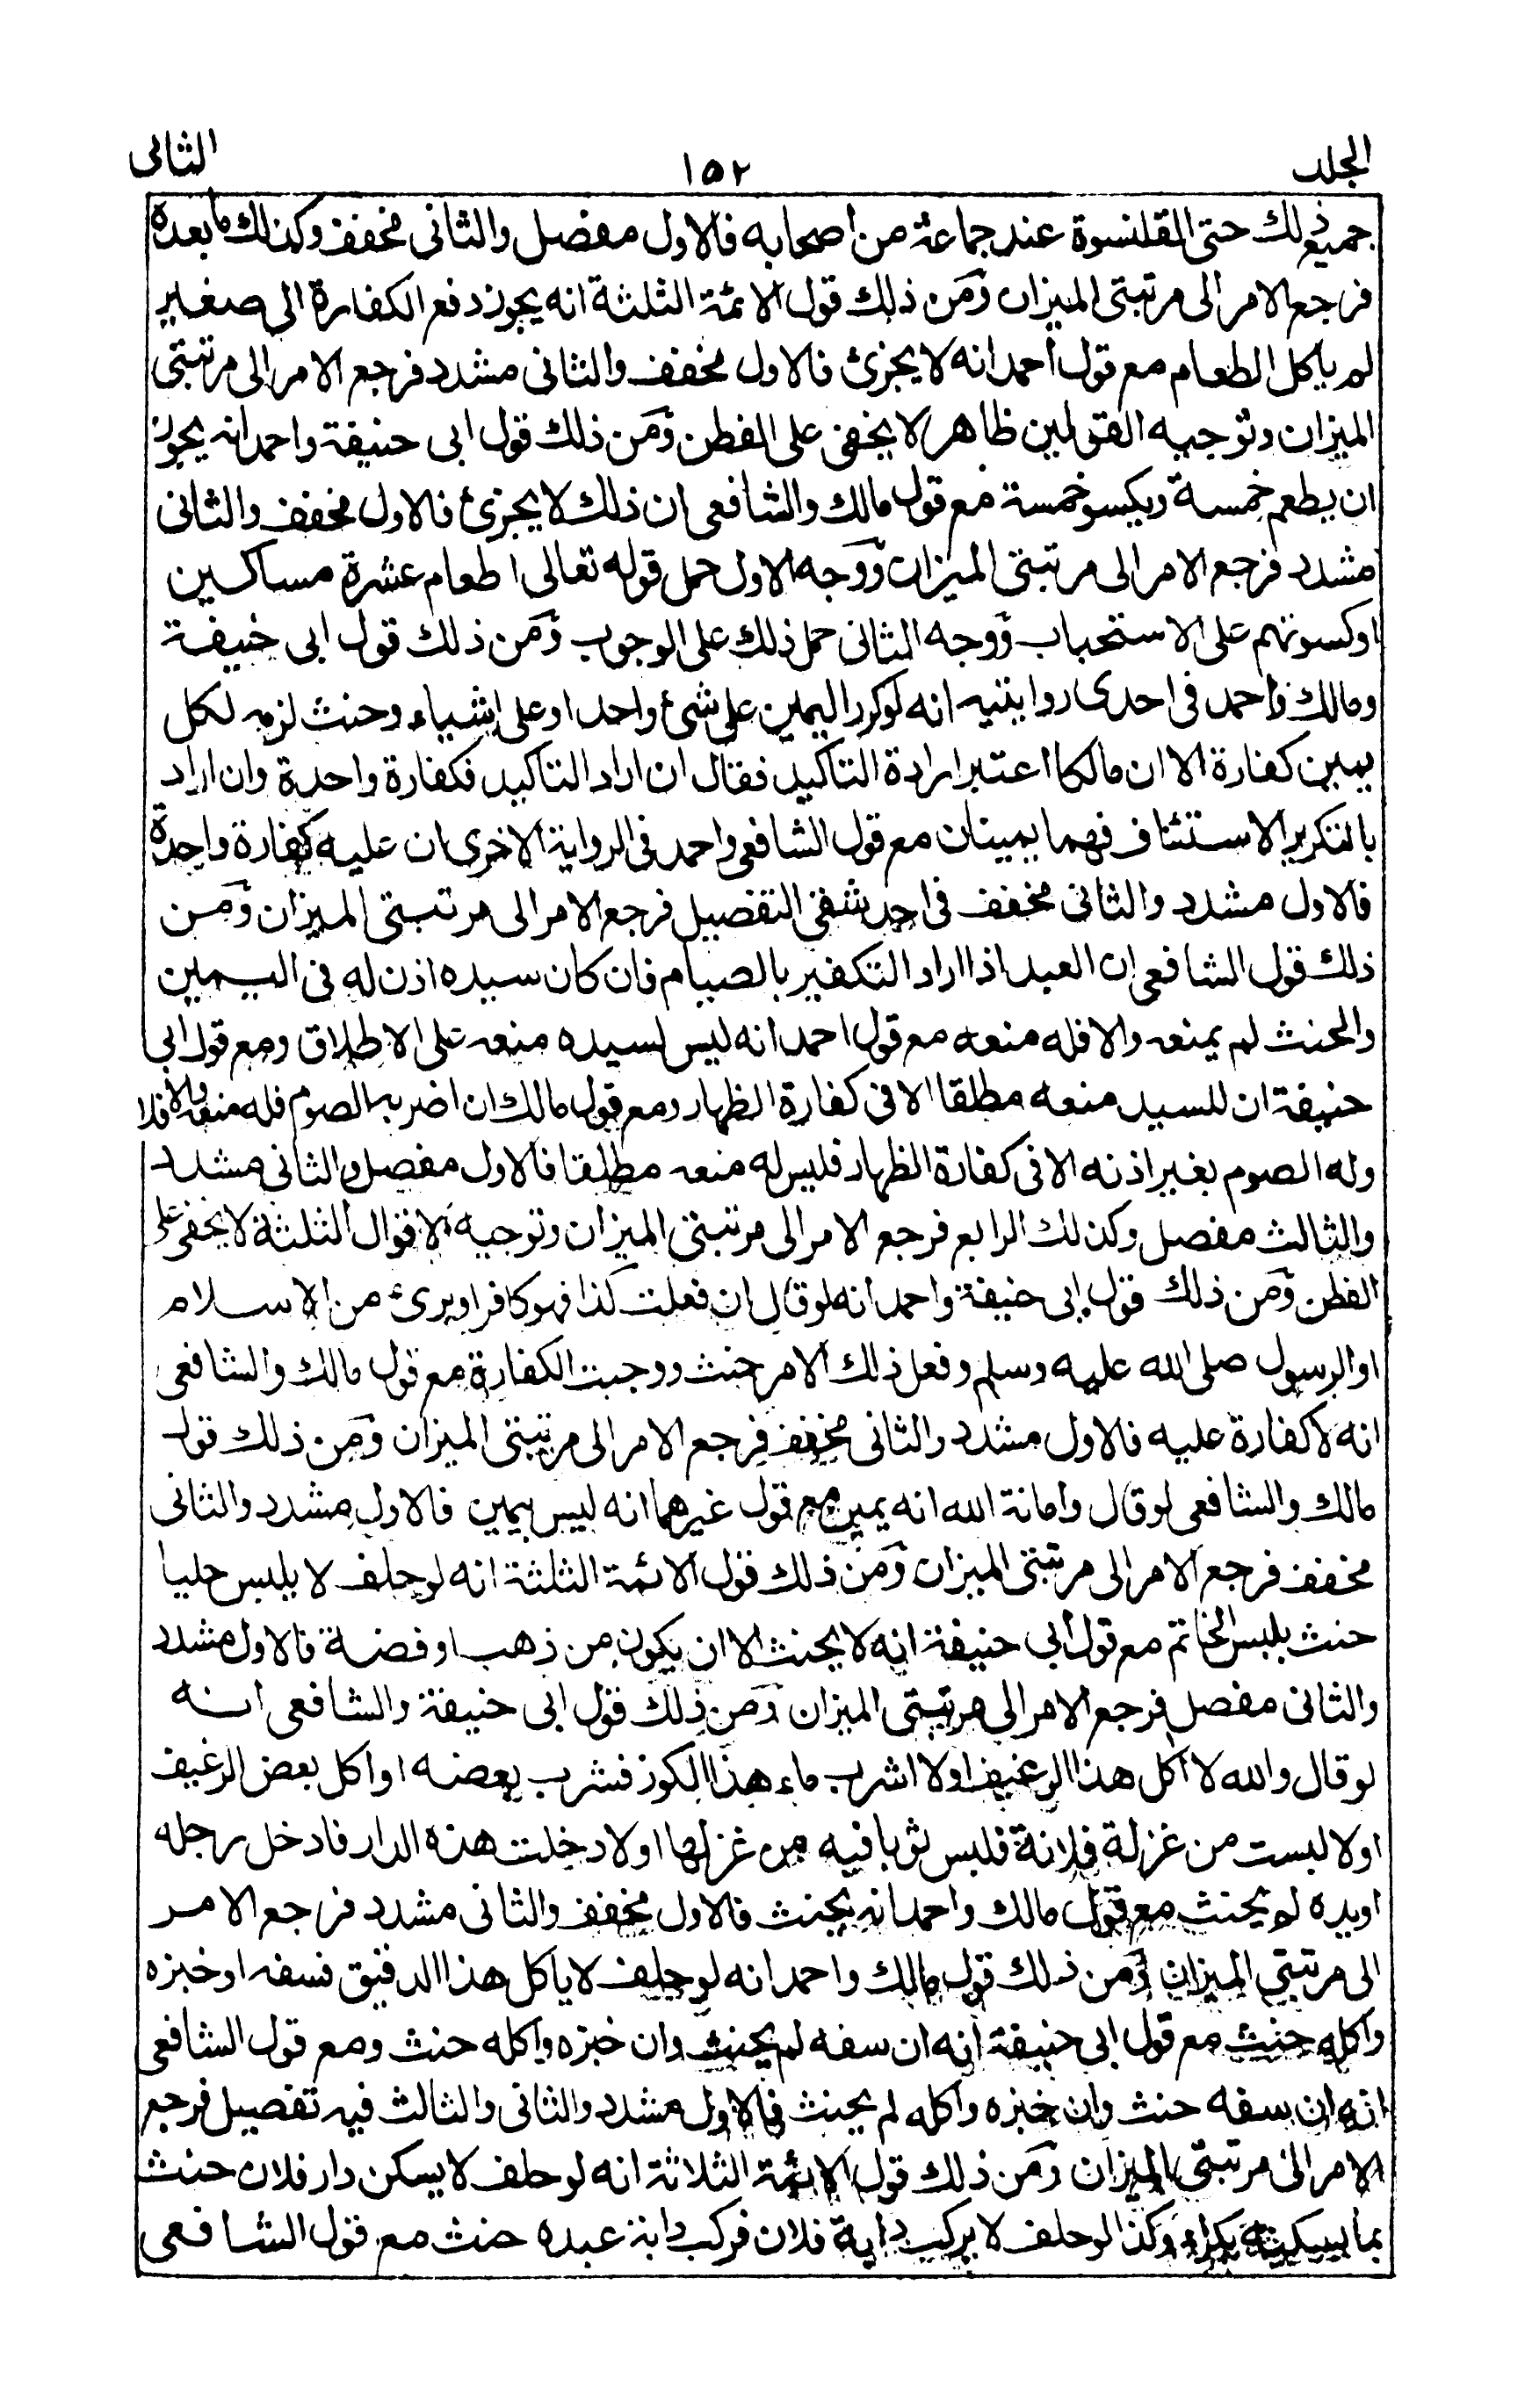 الجلد ١٥٢ الثانى
جميع ذلك حتى القلنسوة عند جماعة من أصحابه فالاول مفصل والثانى مخفف وكذلك ما بعده
فرجع الامر الى مرتبتى الميزان ومن ذلك قول الائمة الثلثة انه يجوز دفع الكفارة الى صغير
لم ياكل الطعام مع قول أحمد انه لا يجزئ فالاول مخفف والثانى مشدد فرجع الامر الى مرتبتى
الميزان وتوجيه القولين ظاهر لا يخفى على الفطن ومن ذلك قول ابى حنيفة واحمد انه يجوز
ان يطعم خمسة ويكسو خمسة مع قول مالك والشافعى ان ذلك لا يجزئ فالاول مخفف والثانى
مشدد فرجع الامر الى مرتبتى الميزان ووجه الاول حمل قوله تعالى اطعام عشرة مساكين
اوكسوتهم على الاستحباب ووجه الثانى حمل ذلك على الوجوب ومن ذلك قول ابى حنيفة
ومالك واحمد فى احدى روايتيه انه لوكرر اليمين على شئ واحد او على اشياء وحنث لزمه لكل
يمين كفارة الا ان مالكا اعتبر ارادة التاكيد فقال ان اراد التاكيد فكفارة واحدة وان اراد
بالتكرير الاستئناف فهما يمينان مع قول الشافعى واحمد فى الرواية الاخرى ان عليه كفارة واحدة
فالاول مشدد والثانى مخفف فى احد شقى التفصيل فرجع الامر الى مرتبتى الميزان ومن
ذلك قول الشافعى ان العبد اذا اراد التكفير بالصيام فان كان سيده اذن له فى اليمين
والحنث لم يمنعه والا فله منعه مع قول احمد انه ليس لسيده منعه على الاطلاق ومع قول ابى
حنيفة ان للسيد منعه مطلقا الا فى كفارة الظهار ومع قول مالك ان اضر به الصوم فله منعه والا فلا
وله الصوم بغير اذنه الا فى كفارة الظهار فليس له منعه مطلقا فالاول مفصل والثانى مشدد
والثالث مفصل وكذلك الرابع فرجع الامر الى مرتبتى الميزان وتوجيه الاقوال الثلثة لا يخفى على
الفطن ومن ذلك قول ابى حنيفة واحمد انه لو قال ان فعلت كذا فهو كافر او برئ من الاسلام
او الرسول صلى الله عليه وسلم وفعل ذلك الامر حنث ووجبت الكفارة مع قول مالك والشافعى
انه لا كفارة عليه فالاول مشدد والثانى مخفف فرجع الامر الى مرتبتى الميزان ومن ذلك قول
مالك والشافعى لو قال وامانة الله انه يمين مع قول غيرهما انه ليس بيمين فالاول مشدد والثانى
مخفف فرجع الامر الى مرتبتى الميزان ومن ذلك قول الائمة الثلثة انه لو حلف لا يلبس حليا
حنث بلبس الخاتم مع قول أبى حنيفة انه لا يحنث الا ان يكون من ذهب او فضة فالاول مشدد
والثانى مفصل فرجع الامر الى مرتبتى الميزان ومن ذلك قول ابى حنيفة والشافعى انه
لو قال والله لا اكل هذا الرغيف اولا اشرب ماء هذا الكوز فشرب بعضه او اكل بعض الرغيف
اولا لبست من غزلة فلانة فلبس ثوبا فيه من غزلها اولا دخلت هذه الدار فادخل رجله
او يده لم يحنث مع قول مالك واحمد انه يحنث فالاول مخفف والثانى مشدد فرجع الامر
الى مرتبتى الميزان ومن ذلك قول مالك واحمد انه لو حلف لا ياكل هذا الدقيق فسفه او خبزه
واكله حنث مع قول ابى حنيفة انه ان سفه لم يحنث وان خبزه واكله حنث ومع قول الشافعى
انه ان سفه حنث وان خبزه واكله لم يحنث فالاول مشدد والثانى والثالث فيه تفصيل فرجع
الامر الى مرتبتى الميزان ومن ذلك قول الائمة الثلاثة انه لو حلف لا يسكن دار فلان حنث
بما يسكنه بكراء وكذا لو حلف لا يركب دابة فلان فركب دابة عبده حنث مع قول الشافعى